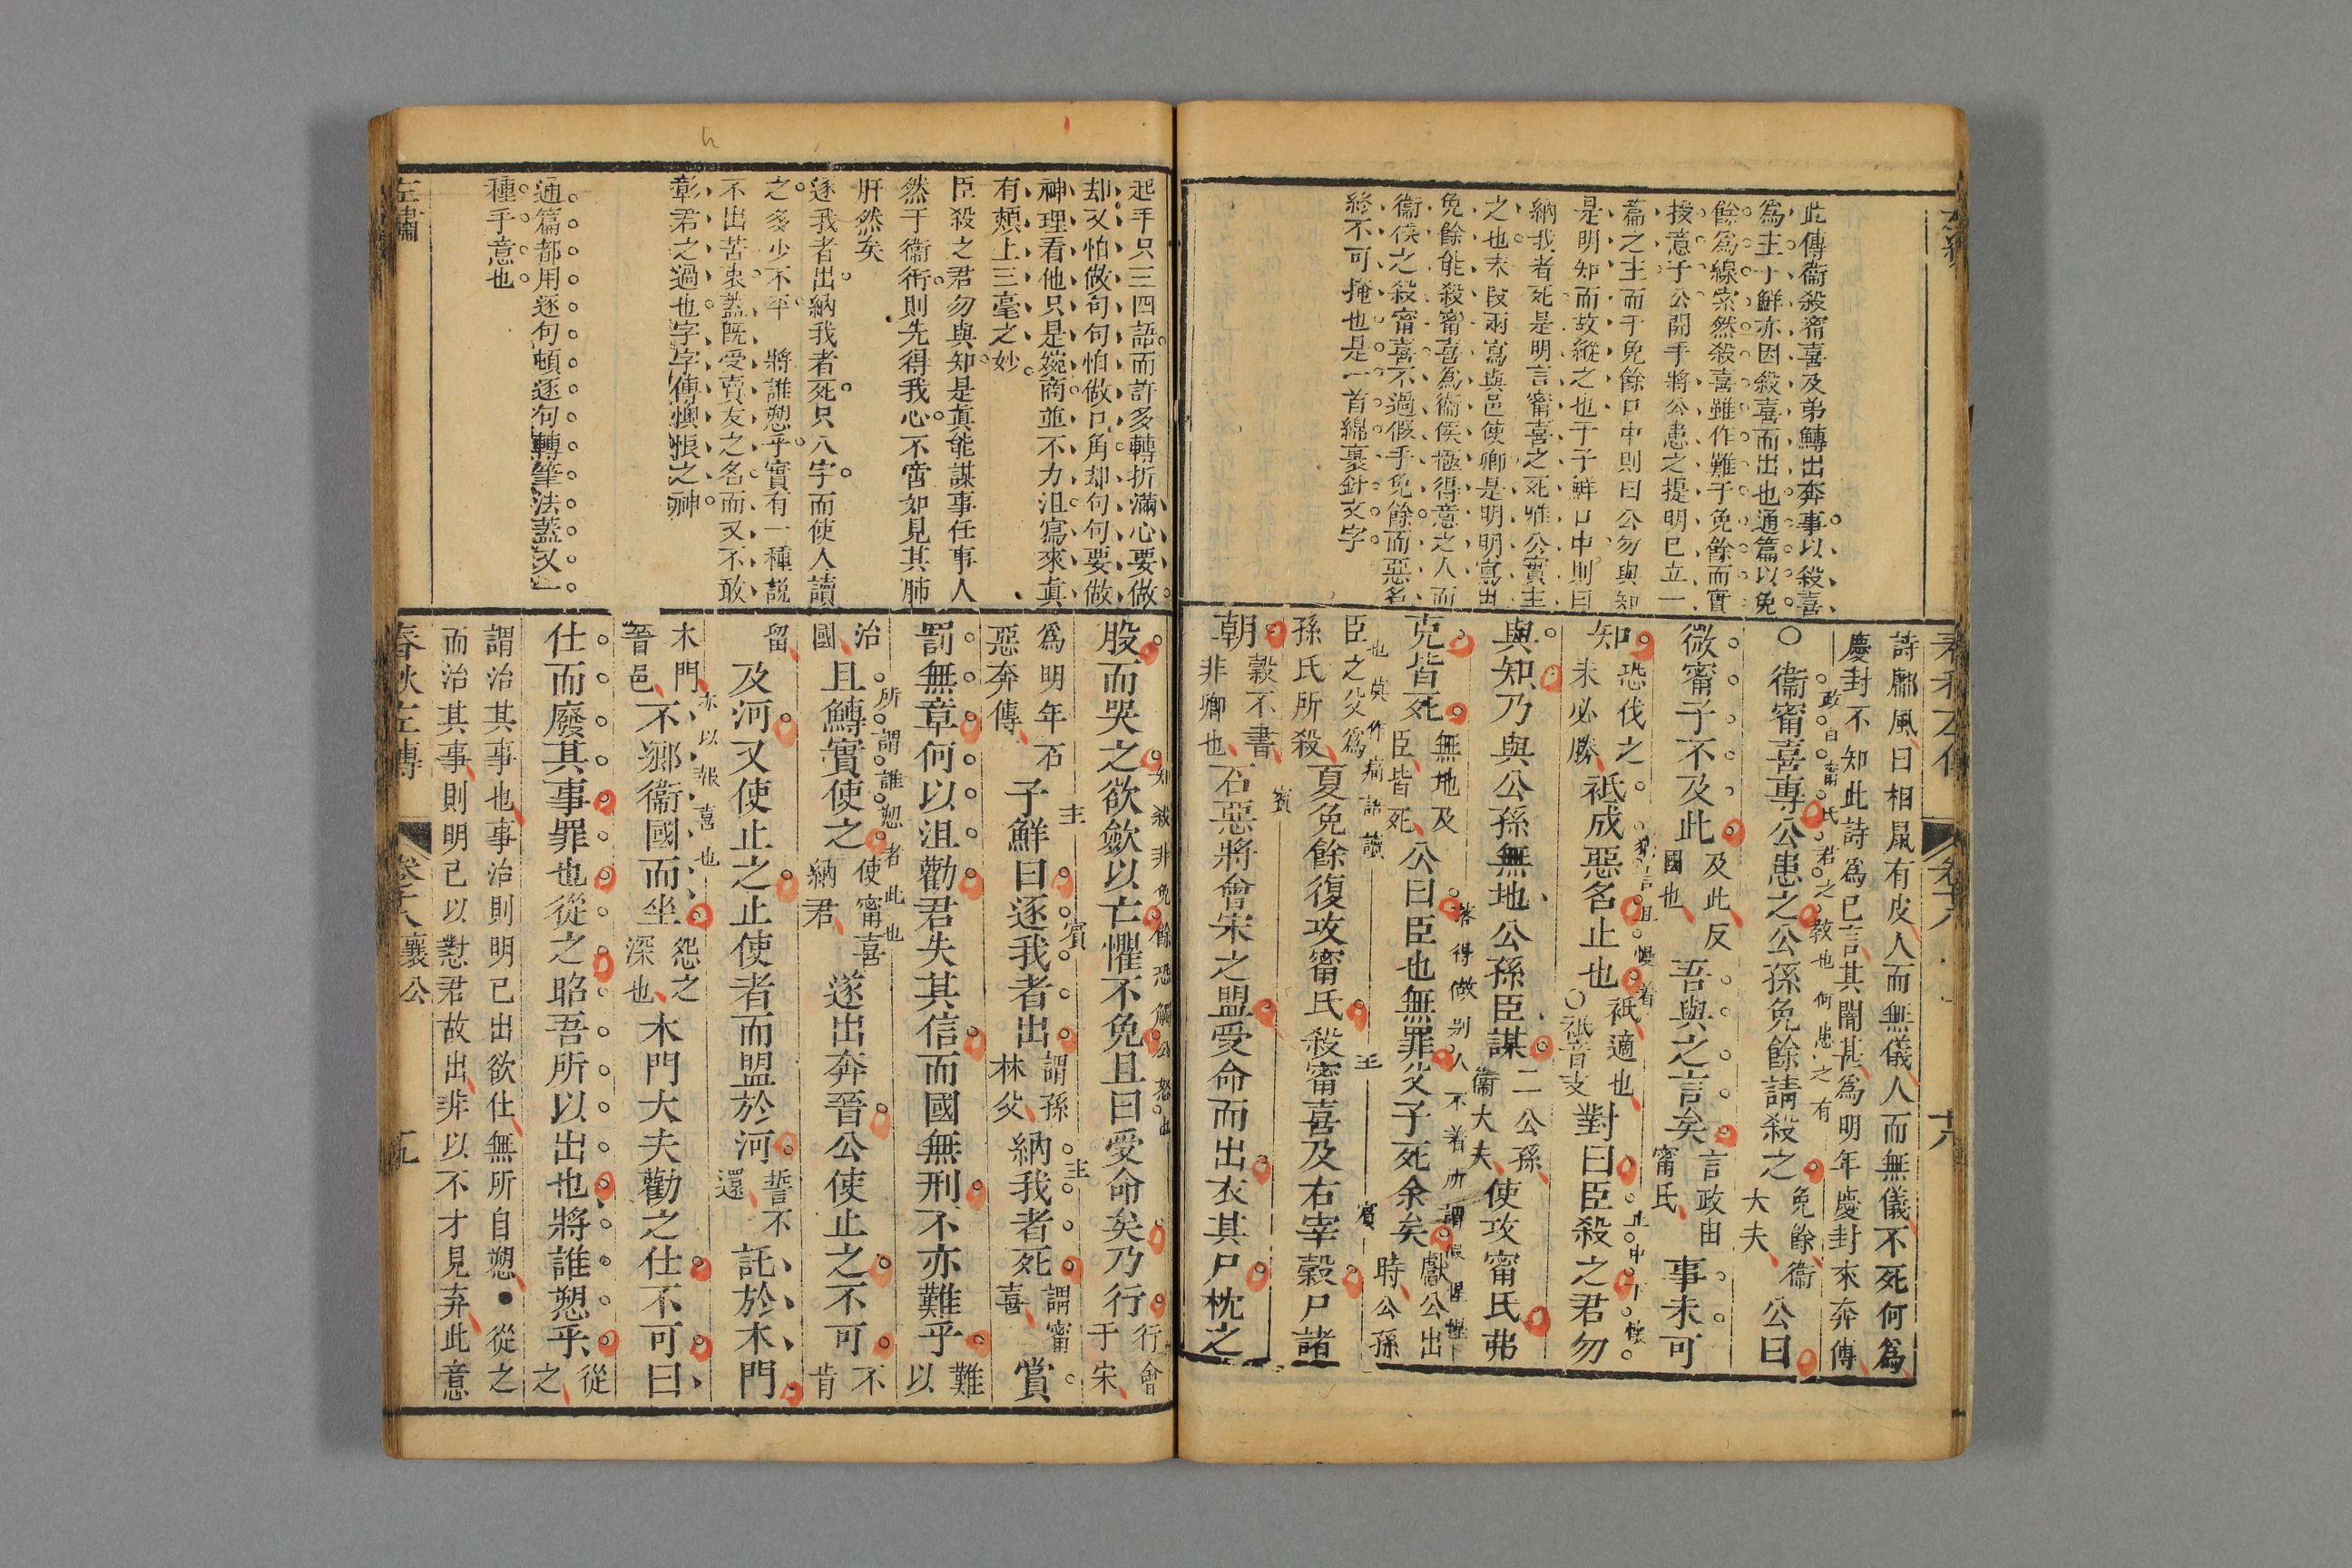 此傳衞殺甯喜及弟鱄出奔事以殺喜
爲主子鮮亦因殺喜而出也通篇以免
餘爲線索然殺喜雖作難于免餘而實
授意于公開手將公患之提明已立一
篇之主而于免餘口中則曰公勿與知
是明知而故縱之也于子鮮口中則曰
納我者死是明言甯喜之死惟公實主
之也末段兩寫與邑使卿是明明寫出
免餘能殺甯喜爲衞侯極得意之人而
衞侯之殺甯喜不過假手免餘而惡名
終不可掩也是一首綿裹針文字
詩鄘風曰相鼠有皮人而無儀人而無儀不死何爲
慶封不知此詩爲己言其闇甚爲明年慶封來奔傳
○衞甯喜專公患之公孫免餘請殺之免餘衞大夫公曰
政自甯氏君之教也何患之有
微甯子不及此及此反國也吾與之言矣言政由甯氏事未可
知恐伐之未必勝祇成惡名止也祇適也○祇音支對曰臣殺之君勿
與知乃與公孫無地公孫臣謀二公孫衞大夫使攻甯氏弗
克皆死無地及臣皆死公曰臣也無罪父子死余矣獻公出時公孫
答得做别人不着所謂假惺惺
臣之父爲孫氏所殺夏免餘復攻甯氏殺甯喜及右宰穀尸諸
賓
主
賓
朝穀不書非卿也石惡將會宋之盟受命而出衣其尸枕之
起手只三四語而許多轉折滿心要做
却又怕做句句怕做口角却句句要做
神理看他只是婉商並不力沮寫來真
有頰上三毫之妙
臣殺之君勿與知是真能謀事任事人
然于衞衎則先得我心不啻如見其肺
肝然矣
逐我者出納我者死只八字而使人讀
之多少不平 將誰愬乎實有一種説
不出苦衷蓋既受賣友之名而又不敢
彰君之過也字字傳懊悵之神
通篇都用逐句頓逐句轉筆法蓋又一
種手意也
股而哭之欲斂以亡懼不免且曰受命矣乃行行會于宋
如殺非免餘恐觸公怒也
爲明年石惡奔傳子鮮曰逐我者出謂孫林父納我者死謂甯喜賞
主
賓
主
罰無章何以沮勸君失其信而國無刑不亦難乎難以
治國且鱄實使之使甯喜納君遂出奔晉公使止之不可不肯
所謂誰愬者此也
留及河又使止之止使者而盟於河誓不還託於木門
木門晉邑不鄉衞國而坐怨之深也木門大夫勸之仕不可曰
亦以報喜也
仕而廢其事罪也從之昭吾所以出也將誰愬乎從之
謂治其事也事治則明己出欲仕無所自愬●從之
而治其事則明己以懟君故出非以不才見弃此意
春秋左傳
襄公